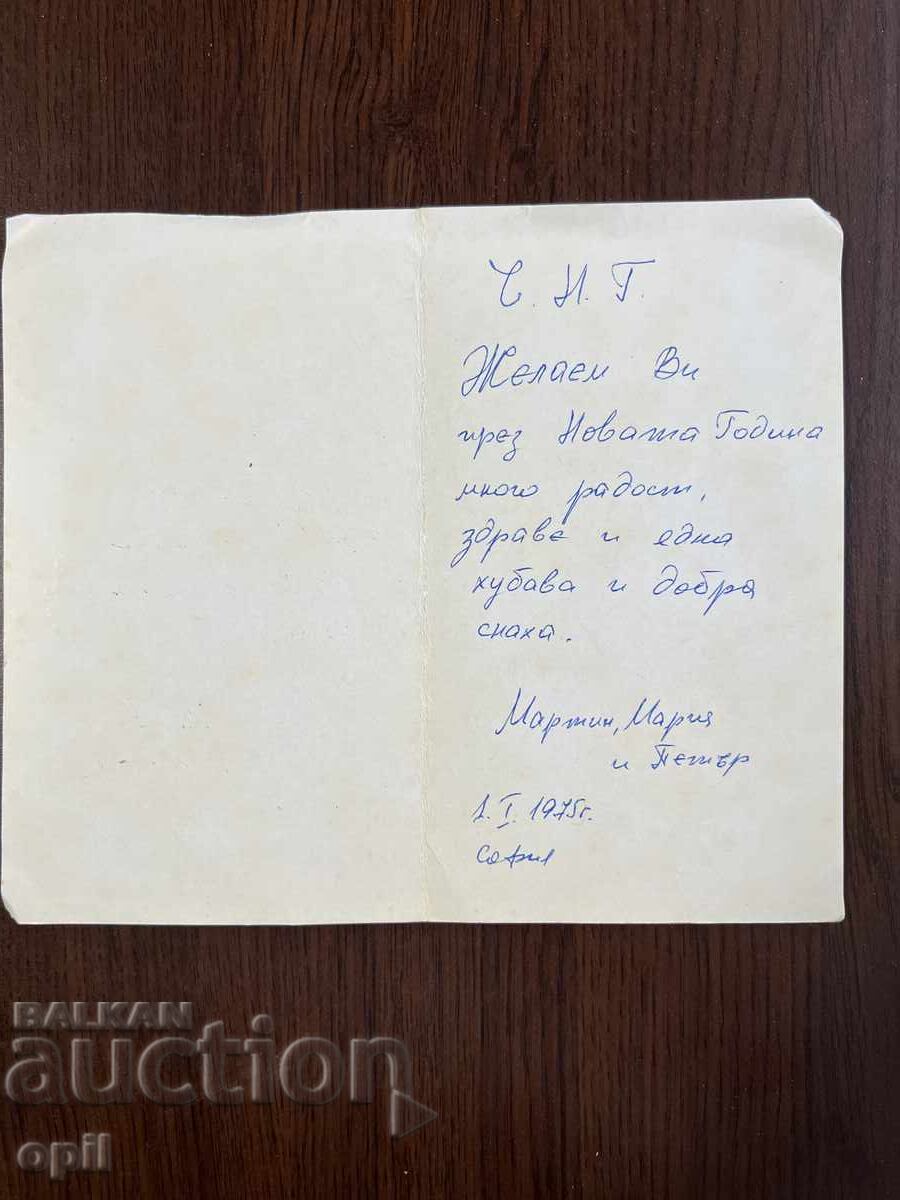 Ч. Н. Г.
Желаем Ви
през Новата Година
много радост,
здраве и една
хубава и добра
снаха.
Мартин, Мария
и Петър
1. I. 1975г.
София
BALKAN
auction
opil